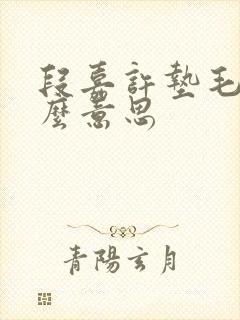 段嘉許墊毛
麼意思
青陽玄月